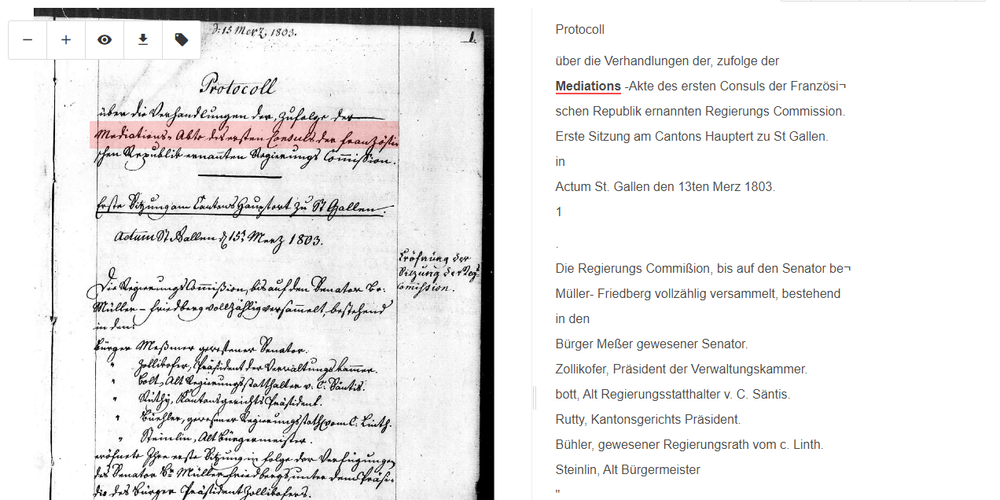 d. 15 Merz, 1803.
1.
Protocoll
über die Verhandlungen der, zufolge der
Mediations-Akte des ersten Consuls der Französi
schen Republik ernannten Regierungs Commißion.
Erste Sitzung am Cantons Hauptort zu St Gallen.
Actum St. Gallen d. 15t Merz 1803.
Eröfnung der
Sitzung der Reg.
Comißion.
Die Regierungs Commißion, bis auf den Senator
Müller-Friedberg vollzählig versammelt, bestehend
in den:
Bürger Meßmer gewesener Senator.
" Zollikofer, Präsident der Verwaltungskammer.
" Bolt, Alt Regierungsstatthalter v. C. Säntis.
" Kantonsgerichts Präsident.
" gewesener Regierungsstatth. vom C. Linth.
" Steinlin, Alt Bürgermeister.
eröfnete Ihre erste Sitzung in folge der Verfügungen
des Senator Müller Friedbergs, unter dem Präsi-
dio des Bürger Präsident Zollikofers.
Protocoll
über die Verhandlungen der, zufolge der
Mediations -Akte des ersten Consuls der Französi¬
schen Republik ernannten Regierungs Commission.
Erste Sitzung am Cantons Hauptert zu St Gallen.
in
Actum St. Gallen den 13ten Merz 1803.
1
.
Die Regierungs Commißion, bis auf den Senator be¬
Müller- Friedberg vollzählig versammelt, bestehend
in den
Bürger Meßer gewesener Senator.
Zollikofer, Präsident der Verwaltungskammer.
bott, Alt Regierungsstatthalter v. C. Säntis.
Rutty, Kantonsgerichts Präsident.
Bühler, gewesener Regierungsrath vom c. Linth.
Steinlin, Alt Bürgermeister
"